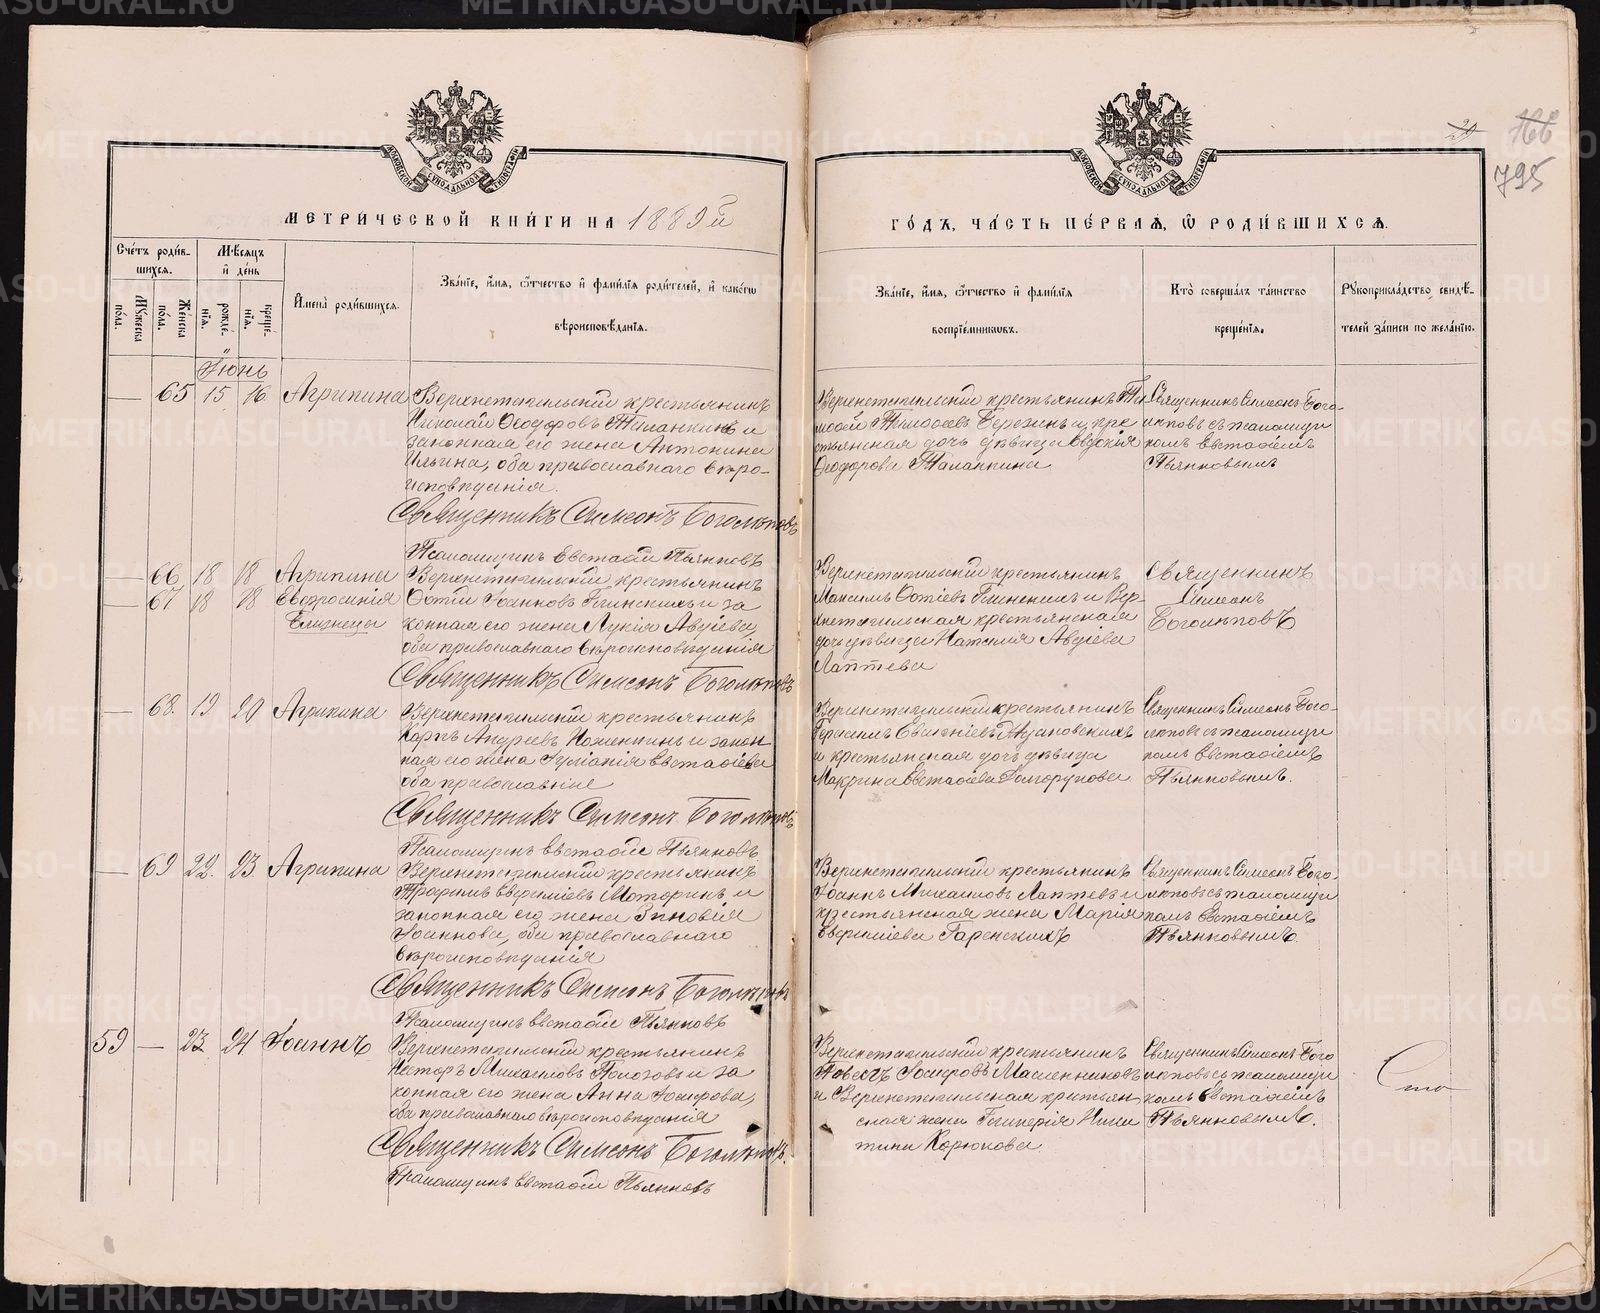 МЕТРИЧЕСКОЙ КНИГИ НА 1889й
Счетъ родив-
шихся.
Мѣсяцъ
и день
Мужеска
пола.
Женска
пола.
рожде-
нія.
креще-
нія.
Имена родившихся.
Званіе, имя, отчество и фамилія родителей, и какого
вѣроисповѣданія.
Іюнь
— 65 15 16 Агрипина
Верхнетагильскій крестьянинъ
Николай Ѳеодоровъ Таланкинъ и
законная его жена Антонина
Ильина, оба православнаго вѣро-
исповѣданія.
Священникъ Симеонъ Боголѣповъ
Псаломщикъ Евстафій Пьянковъ
— 66 18 18 Агрипина
— 67 18 18 Евфросинія
Близнецы
Верхнетагильскій крестьянинъ
Фотій Іоанновъ Глинскихъ и за
конная его жена Лукія Авдіева
оба православнаго вѣроисповѣданія
Священникъ Симеонъ Боголѣповъ
— 68. 19 20 Агрипина
Верхнетагильскій крестьянинъ
Карпъ Андреевъ Ноженкинъ и закон
ная его жена Іуліанія Евстафіева
оба православные
Священникъ Симеонъ Боголѣповъ
Псаломщикъ Евстафій Пьянковъ
— 69 22. 23. Агрипина
Верхнетагильскій крестьянинъ
Трофимъ Евфиміевъ Моторинъ и
законная его жена Зиновія
Іоаннова, оба православнаго
вѣроисповѣданія
Священникъ Симеонъ Боголѣповъ
Псаломщикъ Евстафій Пьянковъ
59 — 23 24 Іоаннъ
Верхнетагильскій крестьянинъ
Несторъ Михаиловъ Полозовъ и за
конная его жена Анна Іосифова,
оба православнаго вѣроисповѣданія
Священникъ Симеонъ Боголѣповъ.
Псаломщикъ Евстафій Пьянковъ
20
166
795
ГОДЪ, ЧАСТЬ ПЕРВАЯ, Ѡ РОДИВШИХСЯ.
Званіе, имя, отчество и фамилія
воспріемниковъ.
Кто совершалъ таинство
крещенія.
Рукоприкладство свидѣ-
телей записи по желанію.
Верхнетагильскій крестьянинъ Ти
мофей Тимофеевъ Березинъ и кре
стьянская дочь дѣвица Евдокія
Ѳеодорова Таланкина
Священникъ Симеонъ Бого-
лѣповъ съ псаломщи
комъ Евстафіемъ
Пьянковымъ
Верхнетагильскій крестьянинъ
Максимъ Фотіевъ Глинскихъ и Вер-
хнетагильская крестьянская
дочь дѣвица Наталія Авдіева
Лаптева
Священникъ
Симеонъ
Боголѣповъ
Верхнетагильскій крестьянинъ
и крестьянская дочь дѣвица
Макрина Евстафіева Долгорукова
Священникъ Симеонъ Бого-
лѣповъ съ псаломщи
комъ Евстафіемъ
Пьянковымъ.
Верхнетагильскій крестьянинъ
Іоаннъ Михаиловъ Лаптевъ и
крестьянская жена Марія
Евфиміева Гаренскихъ
Священникъ Симеонъ Бого-
лѣповъ съ псаломщи
комъ Евстафіемъ
Пьянковымъ.
Верхнетагильскій крестьянинъ
Іосифовъ Масленниковъ
и Верхнетагильская крестьян
ская жена Гликерія Ники
тина Корюкова.
Священникъ Симеонъ Бого
лѣповъ съ псаломщи
комъ Евстафіемъ
Пьянковымъ.
METRIKI.GASO-URAL.RU